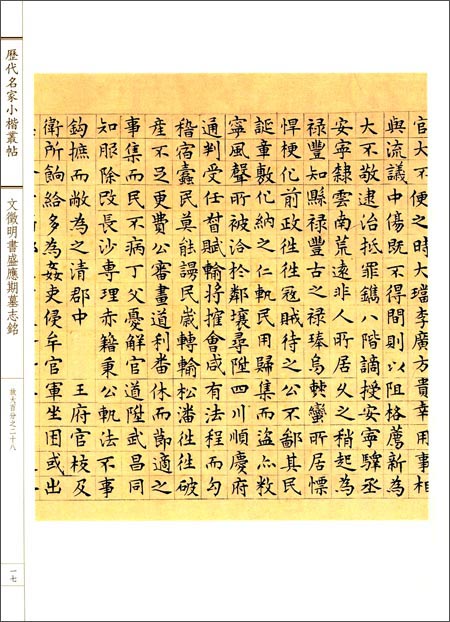 官大不便之時大璫李廣方貴幸用事相
與流議中傷既不得間則以阻格薦新為
大不敬逮治抵罪鐫八階謫授安寧驛丞
安寧隸雲南荒遠非人所居久之稍起為
祿豐知縣祿豐古之祿琫烏轉蠻所居慓
悍梗化前政徃徃寇賊待之公不鄙其民
誕章敷化納之仁軌民用歸集而盜亦敉
寧風聲所被洽於鄰壤尋陞四川順慶府
通判受任督賦輸將搉會咸有法程而勾
稽宿蠹民莫能謾民歲轉輸松潘徃徃破
產不足更費公審畫道利番休而節適之
事集而民不病丁父憂解官道陞武昌同
知服除改長沙專理赤籍秉公執法不事
鈎摭而敝為之清郡中 王府官校及
衛所餉給多為姦吏侵牟官軍坐困或出
歷代名家小楷叢帖
文徵明書盛應期墓志銘
放大百分之二十八
一七